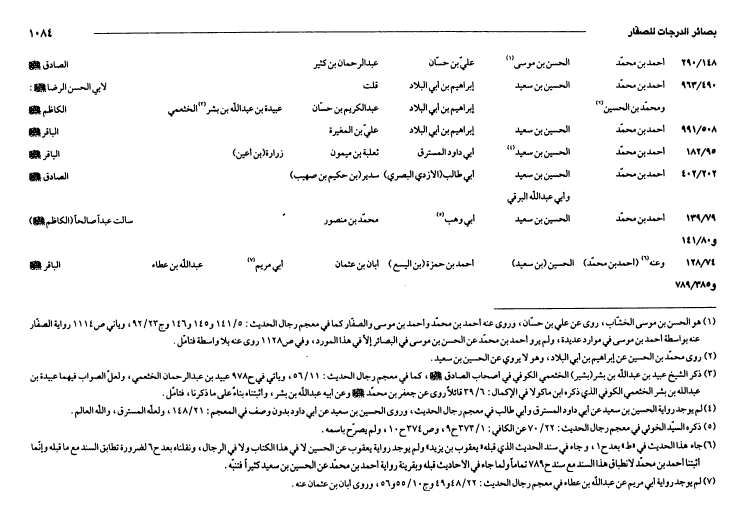 بصائر الدرجات للصفّار ١٠٨٤
٢٩٠/١٤٨ احمد بن محمّد الحسن بن موسى(١) عليّ بن حسّان عبدالرحمان بن كثير الصادق ﷺ
٩٦٣/٤٩٠ احمد بن محمّد الحسين بن سعيد إبراهيم بن أبي البلاد قلت لابي الحسن الرضا ﷺ :
ومحمّد بن الحسين(٢) إبراهيم بن أبي البلاد عبدالكريم بن حسّان عبيدة بن عبدالله بن بشر(٣) الخثعمي الكاظم ﷺ
٩٩١/٥٠٨ احمد بن محمّد الحسين بن سعيد إبراهيم بن أبي البلاد عليّ بن المغيرة الباقر ﷺ
١٨٢/٩٥ احمد بن محمّد الحسين بن سعيد(٤) أبي داود المسترق ثعلبة بن ميمون زرارة(بن أعين) الباقر ﷺ
٤٠٢/٢٠٢ احمد بن محمّد الحسين بن سعيد أبي طالب(الازدي البصري) سدير(بن حكيم بن صهيب) الصادق ﷺ
وأبي عبدالله البرقي
١٣٩/٧٩ احمد بن محمّد الحسين بن سعيد أبي وهب(٥) محمّد بن منصور سالت عبداً صالحاً(الكاظم ﷺ)
و١٤١/٨٠
١٢٨/٧٤ وعنه(٦) (أحمد بن محمّد) الحسين(بن سعيد) احمد بن حمزة(بن اليسع) أبان بن عثمان أبي مريم(٧) عبدالله بن عطاء الباقر ﷺ
و٧٨٩/٣٨٥
(١) هو الحسن بن موسى الخشّاب، روى عن علي بن حسّان، وروى عنه أحمد بن محمّد وأحمد بن موسى والصفّار كما في معجم رجال الحديث : ١٤١/٥ و١٤٥ و١٤٦ وج٩٢/٢٣، وياتي ص١١١٤ رواية الصفّار
عنه بواسطة أحمد بن موسى في موارد عديدة، ولم يرو أحمد بن محمّد عن الحسن بن موسى في البصائر إلاّ في هذا المورد، وفي ص١١٢٨ روى عنه بلا واسطة فتامّل.
(٢) روى محمّد بن الحسين عن إبراهيم بن أبي البلاد، وهو لا يروي عن الحسين بن سعيد.
(٣) ذكر الشيخ عبيد بن عبدالله بن بشر(بشير) الخثعمي الكوفي في أصحاب الصادق ﷺ، كما في معجم رجال الحديث : ٥٦/١١، وياتي في ح٩٧٨ عبيد بن عبدالرحمان الخثعمي، ولعلّ الصواب فيهما عبيدة بن
عبدالله بن بشر الخثعمي الكوفي الذي ذكره ابن ماكولا في الإكمال : ٣٩/٦ قائلاً روى عن جعفر بن محمّد ﷺ وعن أبيه عبدالله بن بشر، واثبتناه بناءً على ما ذكرنا، فتامّل.
(٤) لم يوجد رواية الحسين بن سعيد عن أبي داود المسترق وأبي طالب في معجم رجال الحديث، وروى الحسين بن سعيد عن أبي داود بدون وصف في المعجم : ١٤٨/٢١، ولعلّه المسترق، والله العالم.
(٥) ذكره السيّد الخوئي في معجم رجال الحديث : ٧٠/٢٢ عن الكافي : ٣٧٣/١ح٩، وص٣٧٤ح١٠، ولم يصرّح باسمه.
(٦) جاء هذا الحديث في «ط» بعد ح١، وجاء في سند الحديث الذي قبله«يعقوب بن يزيد» ولم يوجد رواية يعقوب عن الحسين لا في هذا الكتاب ولا في الرجال، ونقلناه بعد ح٦ لضرورة تطابق السند مع ما قبله وإنّما
أثبتنا أحمد بن محمّد لانطباق هذا السند مع سند ح٧٨٩ تماماً ولما جاء في الأحاديث قبله وبقرينة رواية أحمد بن محمّد عن الحسين بن سعيد كثيراً فتنبّه.
(٧) لم يوجد رواية أبي مريم عن عبدالله بن عطاء في معجم رجال الحديث : ٤٨/٢٢ و٤٩ وج٥٥/١٠ و٥٦، وروى أبان بن عثمان عنه.